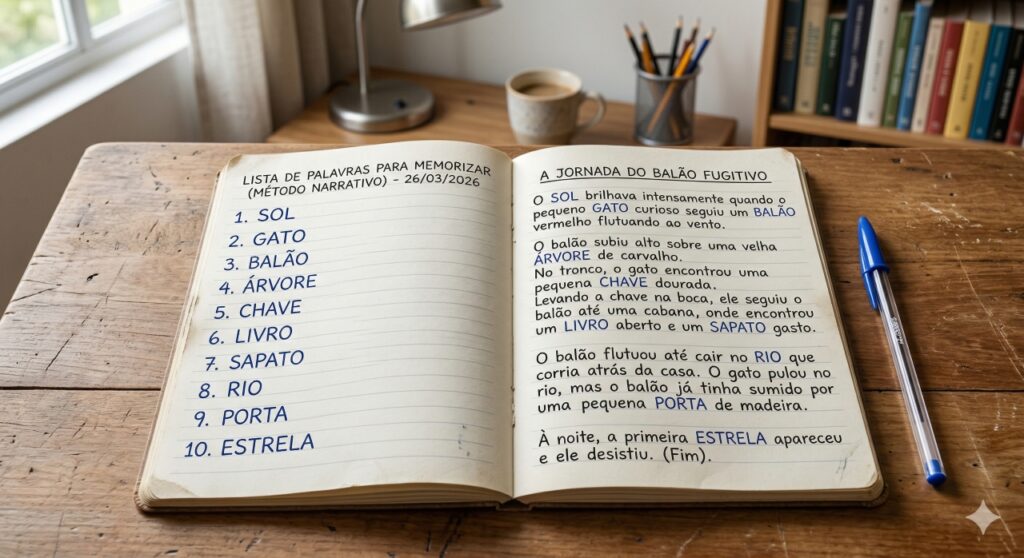 LISTA DE PALAVRAS PARA MEMORIZAR
(MÉTODO NARRATIVO) - 26/03/2026
1. SOL
2. GATO
3. BALÃO
4. ÁRVORE
5. CHAVE
6. LIVRO
7. SAPATO
8. RIO
9. PORTA
10. ESTRELA
A JORNADA DO BALÃO FUGITIVO
O SOL brilhava intensamente quando o
pequeno GATO curioso seguiu um BALÃO
vermelho flutuando ao vento.
O balão subiu alto sobre uma velha
ÁRVORE de carvalho.
No tronco, o gato encontrou uma
pequena CHAVE dourada.
Levando a chave na boca, ele seguiu o
balão até uma cabana, onde encontrou
um LIVRO aberto e um SAPATO gasto.
O balão flutuou até cair no RIO que
corria atrás da casa. O gato pulou no
rio, mas o balão já tinha sumido por
uma pequena PORTA de madeira.
À noite, a primeira ESTRELA apareceu
e ele desistiu. (Fim).